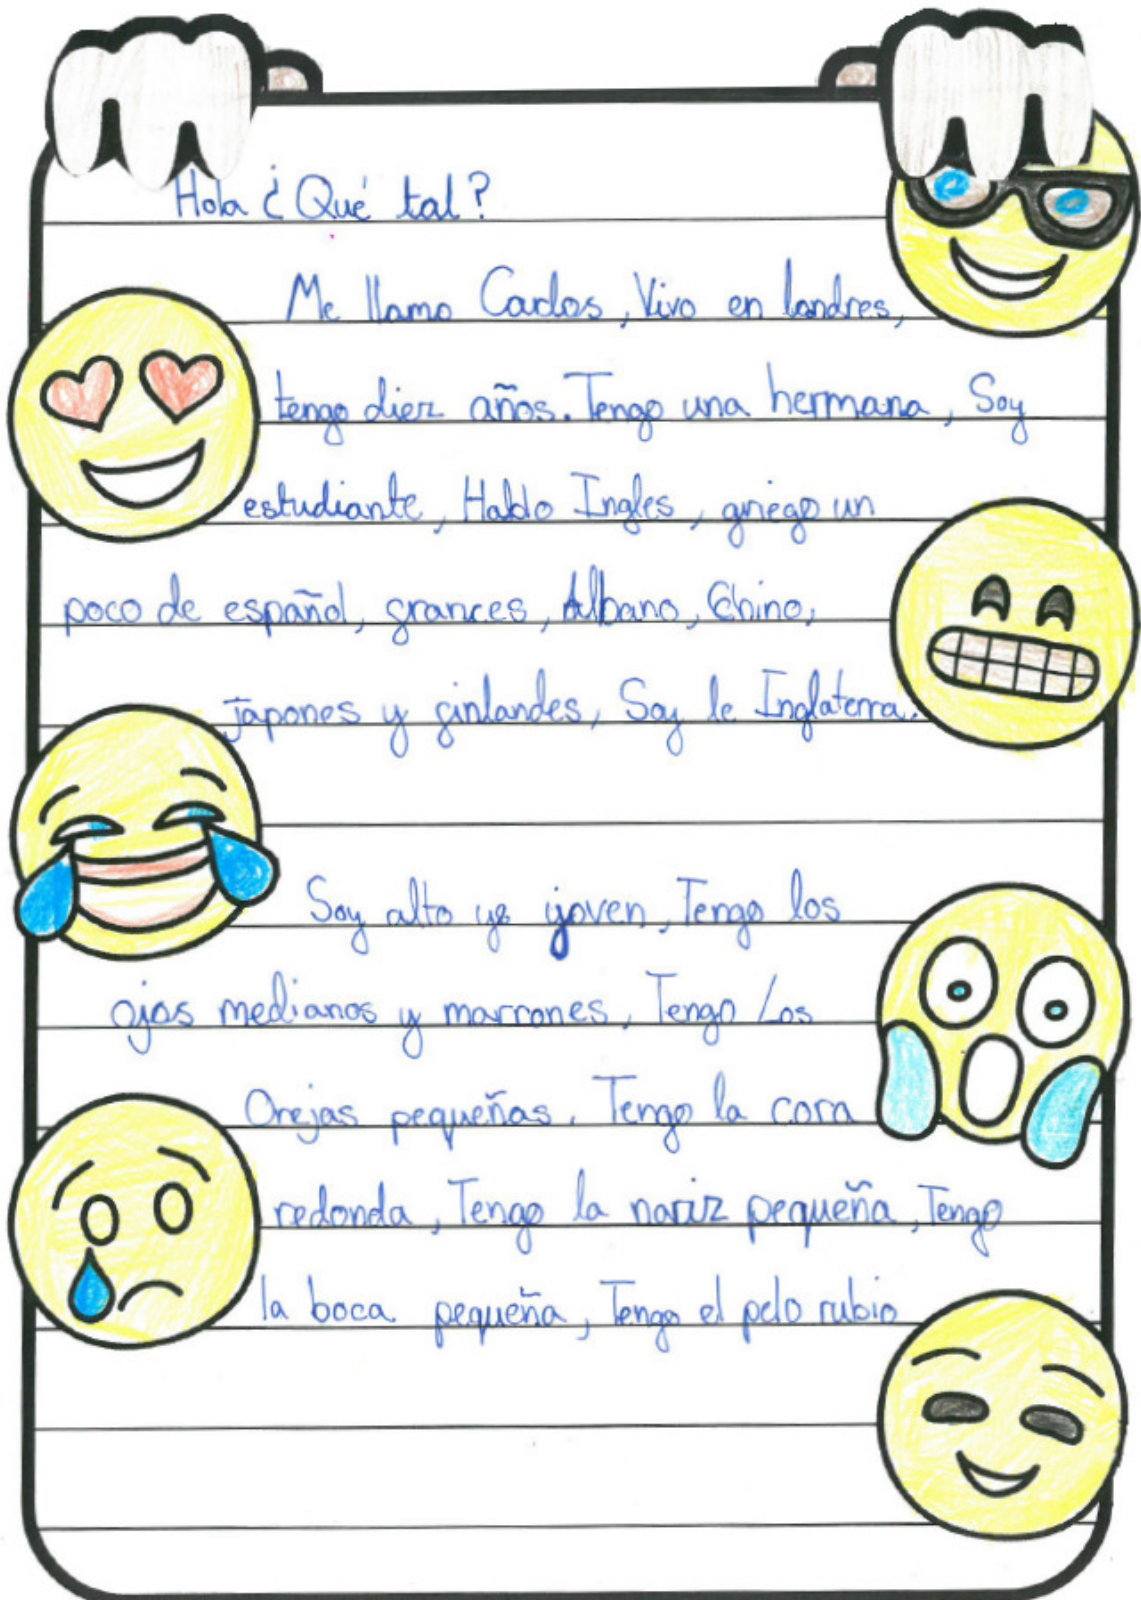 Hola ¿Qué tal?
Me llamo Carlos, Vivo en londres,
tengo diez años. Tengo una hermana, Soy
estudiante, Hablo Ingles, griego un
poco de español, grances, Albano, Chino,
japones y ginlandes, Soy de Inglaterra.
Soy alto y joven, Tengo los
ojos medianos y marrones, Tengo Los
Orejas pequeñas, Tengo la cara
redonda, Tengo la nariz pequeña, Tengo
la boca pequeña, Tengo el pelo rubio